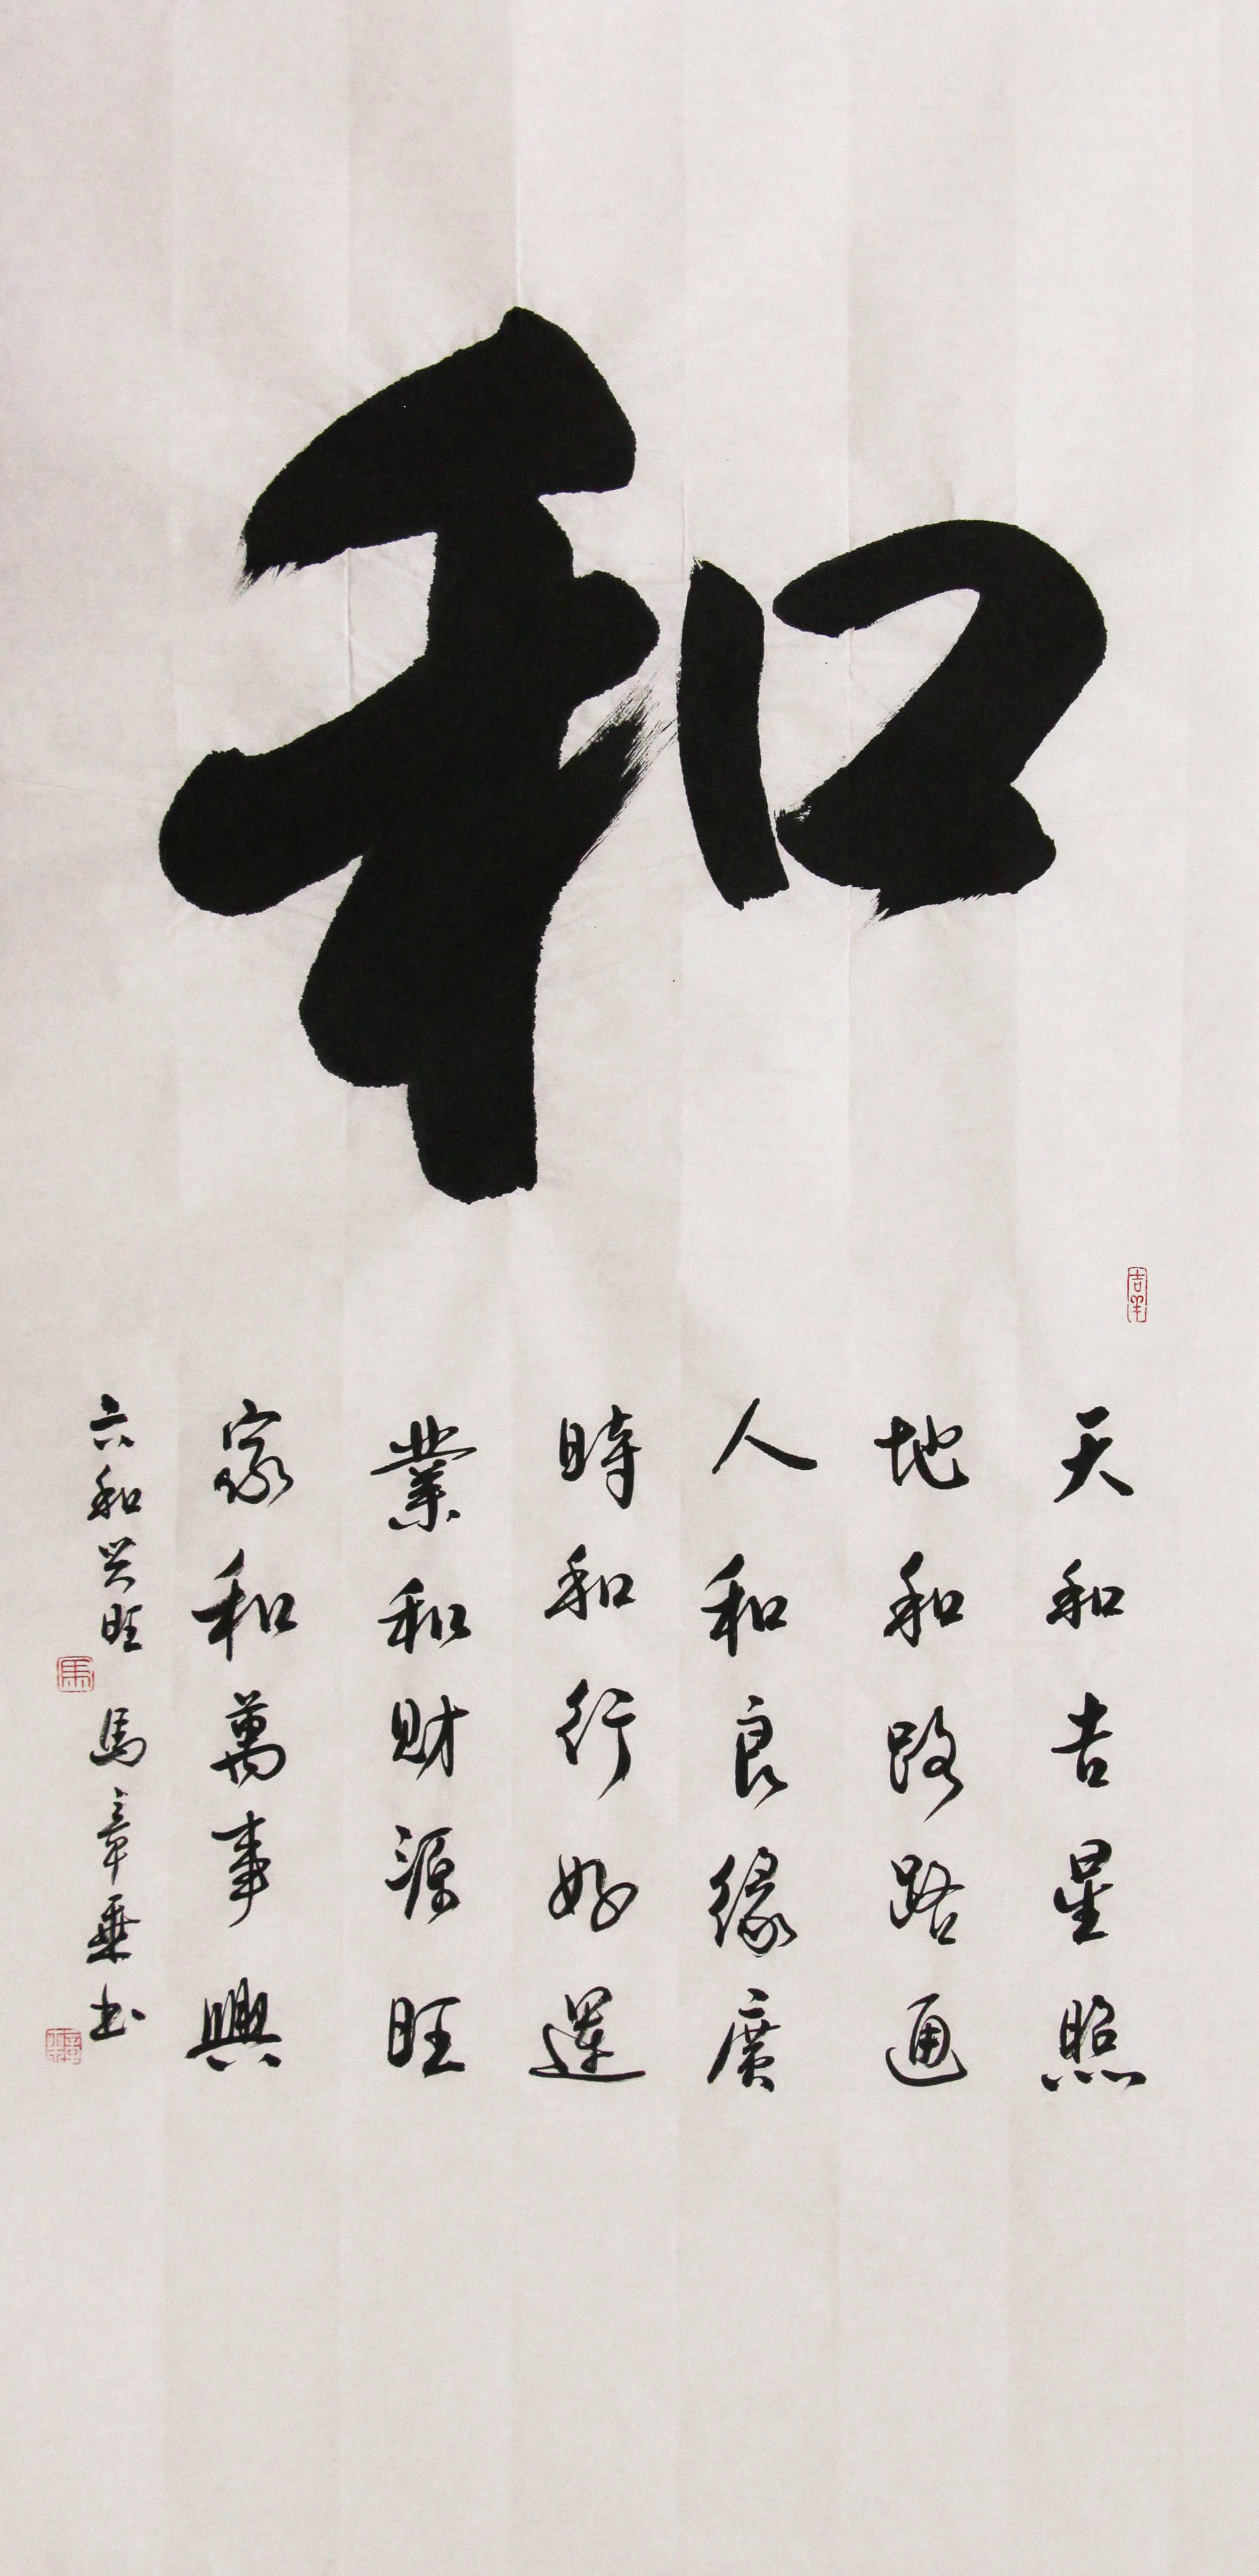 和
天和吉星照
地和路路通
人和良緣廣
時和行好運
業和财源旺
家和萬事興
六和兴旺 馬章乗书
吉羊
馬